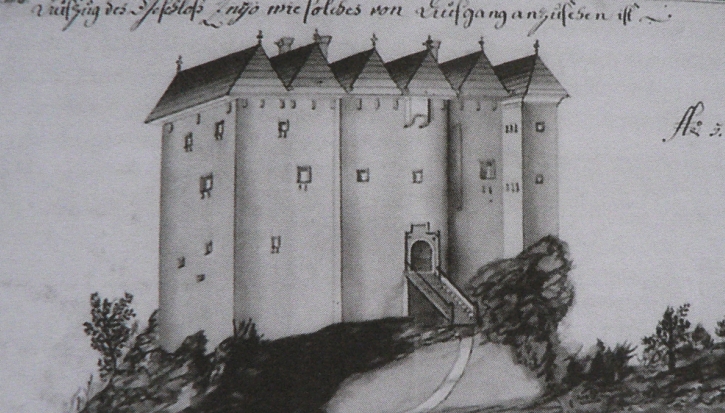 des Schloß Engö wie solches von Aufgang anzusehen ist
No 3.